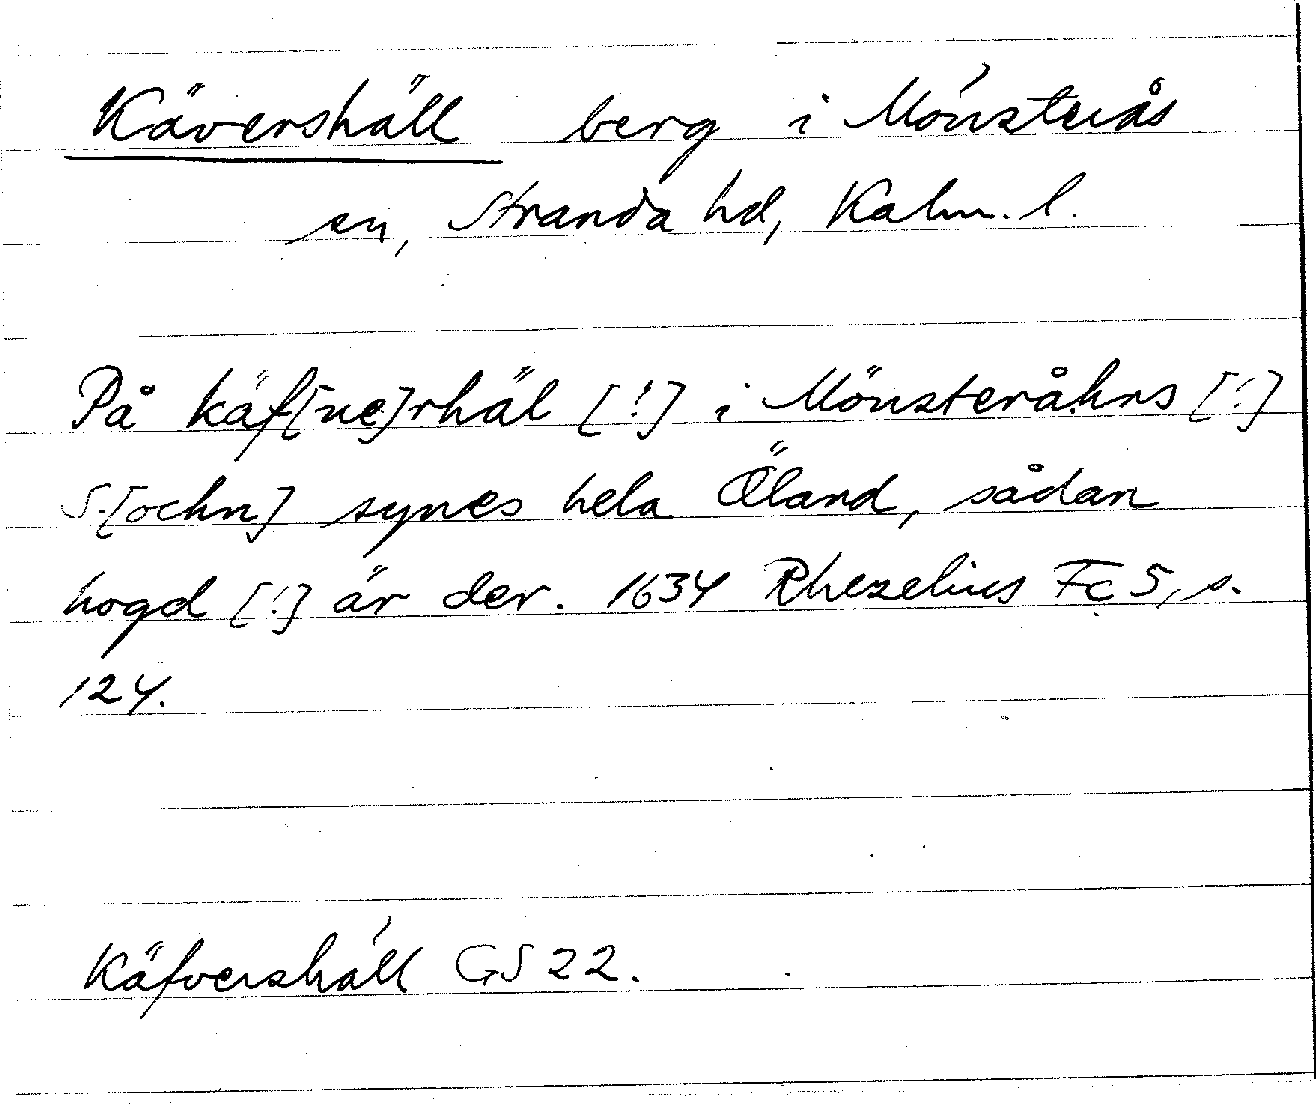 Kävershäll berg i Mönsterås
sn, Stranda hd, Kalm. l.
På käf[ue]rhäl [!] i Mönsteråhrs [!]
S.[ochn] synes hela Öland, sådan
hogd [!] är der. 1634 Rhezelius Fc 5, s.
124.
Käfvershäll GS 22.